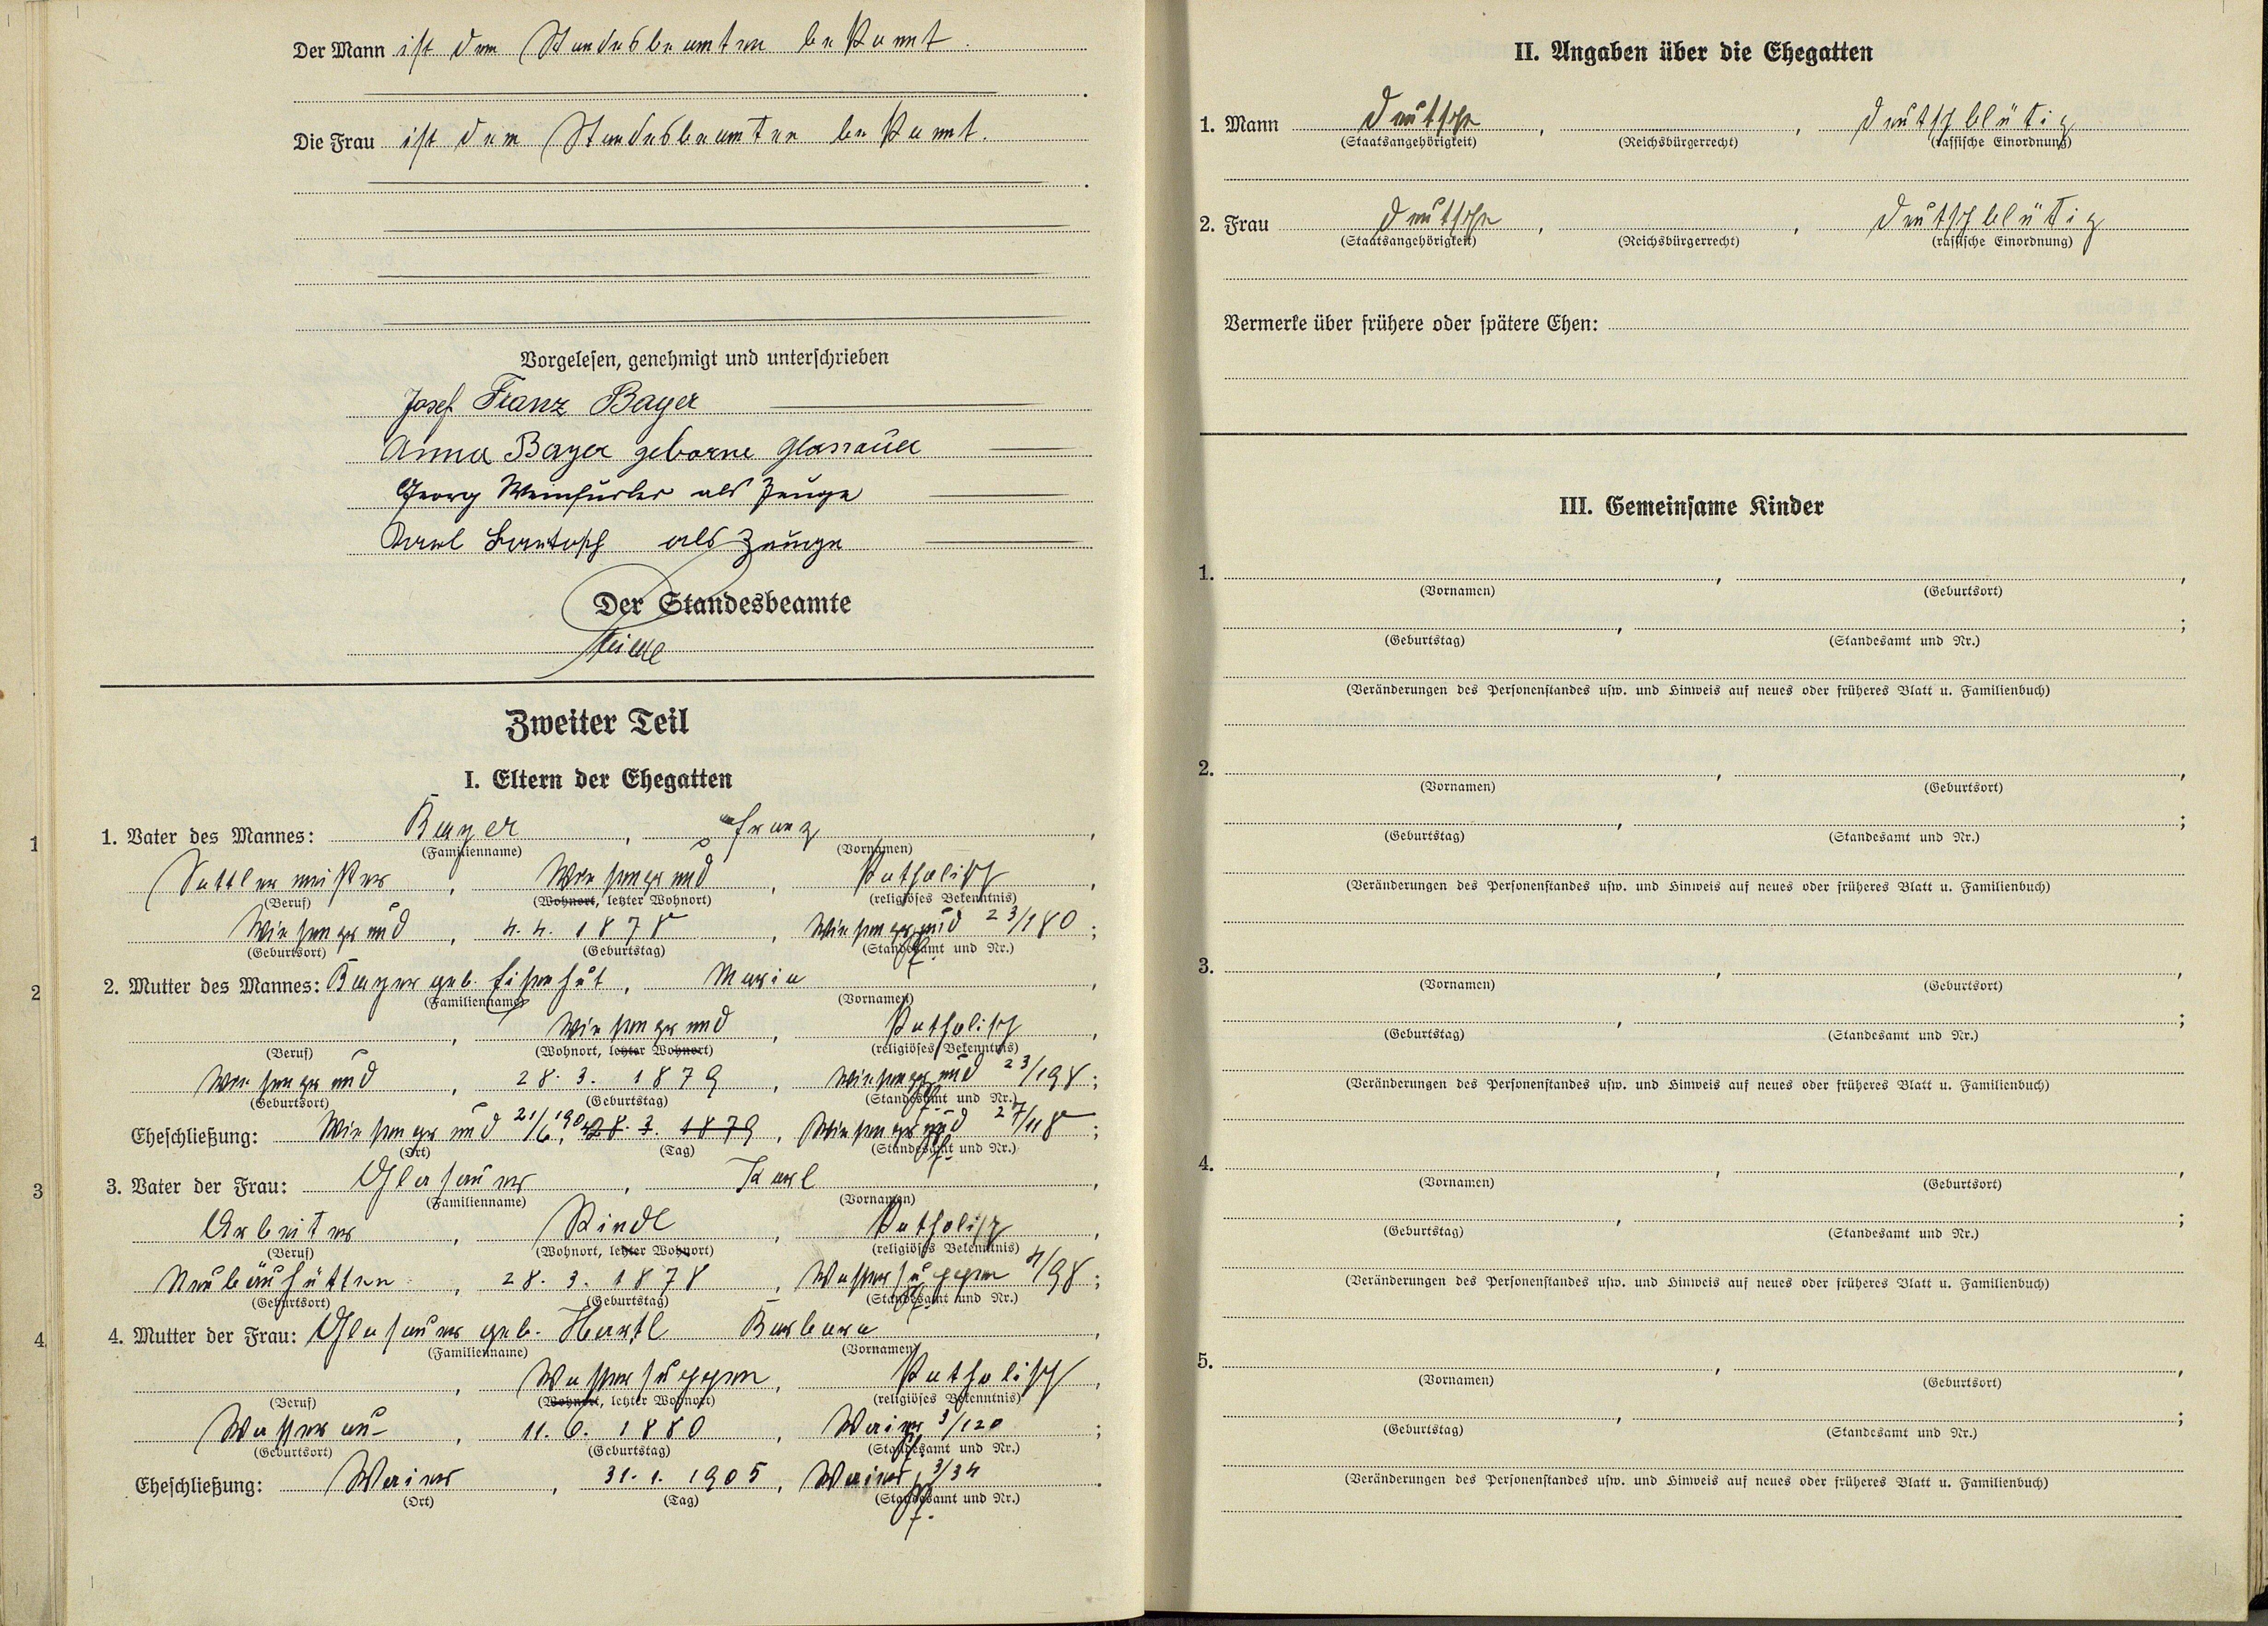 Der Mann ist dem Standesbeamten bekannt.
Die Frau ist dem Standesbeamten bekannt.
Vorgelesen, genehmigt und unterschrieben
Josef Franz Bayer
Anna Bayer geborne Glassauer
Georg Weinfurter als Zeuge
Karl Bartosch als Zeuge
Der Standesbeamte
Zweiter Teil
I. Eltern der Ehegatten
1
1. Vater des Mannes: Bayer, Franz,
(Familienname) (Vornamen)
Sattlermeister, Wiesengrund, katholisch,
(Beruf) (Wohnort, letzter Wohnort) (religiöses Bekenntnis)
Wiesengrund, 4. 4. 1878, Wiesengrund 23/180;
(Geburtsort) (Geburtstag) (Standesamt und Nr.)
2
2. Mutter des Mannes: Bayer geb. Eisenhut, Maria,
(Familienname) (Vornamen)
, Wiesengrund, katholisch,
(Beruf) (Wohnort, letzter Wohnort) (religiöses Bekenntnis)
Wiesengrund, 28. 3. 1879, Wiesengrund 23/198;
(Geburtsort) (Geburtstag) (Standesamt und Nr.)
Eheschließung: Wiesengrund 21/6. 28. 3. 1879, Wiesengrund 27/118;
(Ort) (Tag) (Standesamt und Nr.)
3
3. Vater der Frau: Glasauer, Karl,
(Familienname) (Vornamen)
Arbeiter, Stindl, katholisch,
(Beruf) (Wohnort, letzter Wohnort) (religiöses Bekenntnis)
Neubäuhütten, 28. 3. 1878, Wassersuppen 4/98;
(Geburtsort) (Geburtstag) (Standesamt und Nr.)
4
4. Mutter der Frau: Glasauer geb. Hartl Barbara,
(Familienname) (Vornamen)
, Wassersuppen, katholisch,
(Beruf) (Wohnort, letzter Wohnort) (religiöses Bekenntnis)
Wasserau, 11. 6. 1880, Waier 3/120;
(Geburtsort) (Geburtstag) (Standesamt und Nr.)
Eheschließung: Waier, 31. 1. 1905, Waier 3/34.
(Ort) (Tag) (Standesamt und Nr.)
II. Angaben über die Ehegatten
1. Mann deutsche, , deutschblütig
(Staatsangehörigkeit) (Reichsbürgerrecht) (rassische Einordnung)
2. Frau deutsche, , deutschblütig
(Staatsangehörigkeit) (Reichsbürgerrecht) (rassische Einordnung)
Vermerke über frühere oder spätere Ehen:
III. Gemeinsame Kinder
1. , ,
(Vornamen) (Geburtsort)
, ;
(Geburtstag) (Standesamt und Nr.)
(Veränderungen des Personenstandes usw. und Hinweis auf neues oder früheres Blatt u. Familienbuch)
2. , ,
(Vornamen) (Geburtsort)
, ;
(Geburtstag) (Standesamt und Nr.)
(Veränderungen des Personenstandes usw. und Hinweis auf neues oder früheres Blatt u. Familienbuch)
3. , ,
(Vornamen) (Geburtsort)
, ;
(Geburtstag) (Standesamt und Nr.)
(Veränderungen des Personenstandes usw. und Hinweis auf neues oder früheres Blatt u. Familienbuch)
4. , ,
(Vornamen) (Geburtsort)
, ;
(Geburtstag) (Standesamt und Nr.)
(Veränderungen des Personenstandes usw. und Hinweis auf neues oder früheres Blatt u. Familienbuch)
5. , ,
(Vornamen) (Geburtsort)
, ;
(Geburtstag) (Standesamt und Nr.)
(Veränderungen des Personenstandes usw. und Hinweis auf neues oder früheres Blatt u. Familienbuch)